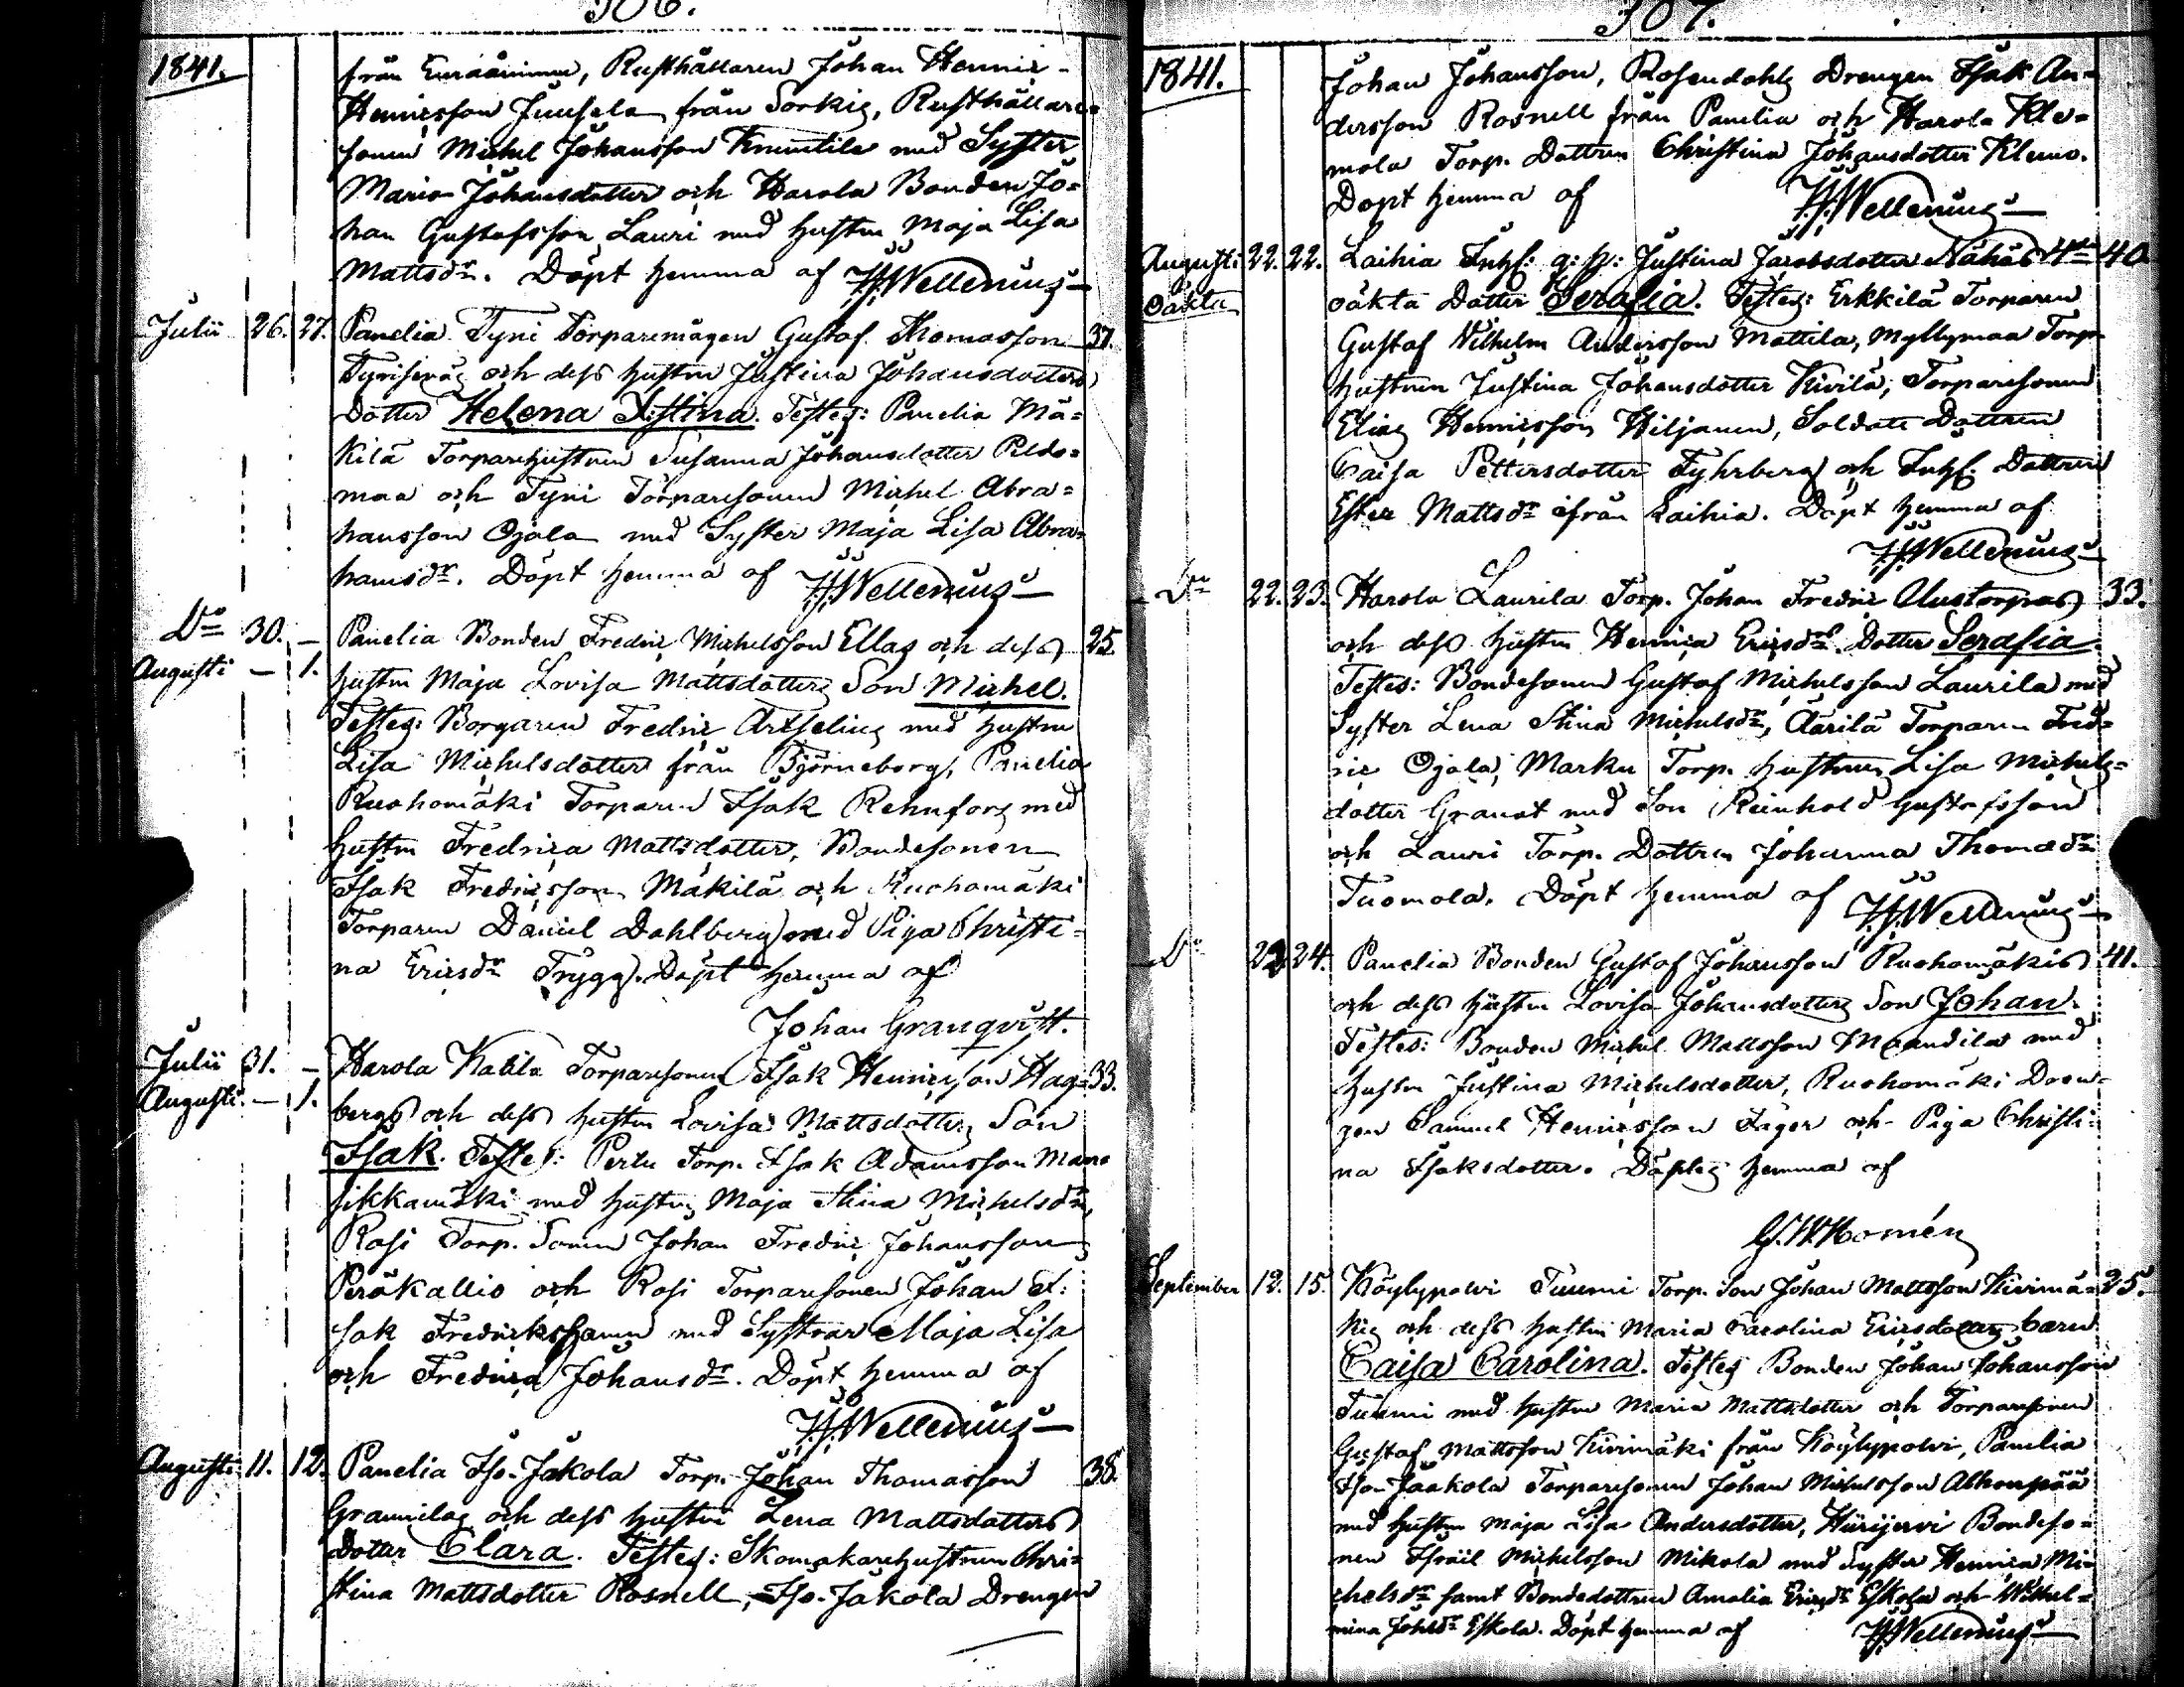 306.
1841.
från Euraåminne, Rusthållaren Johan Henric
Henricsson Juusela från Sorkis, Rusthållare-
sonen Michel Johansson Knuutila med Syster
Maria Johansdotter och Harola Bonden Jo=
han Gustafsson Lauri med hustru Maja Lisa
Mattsdr. Döpt hemma af Wellenius
Julii 26. 27. Panelia Tyni Torparemågen Gustaf Thomasson 37.
och dess hustru Justina Johansdotters
Dotter Helena Justina. Testes: Panelia Mä=
kilä Torparehustrun Susanna Johansdotter Peldo=
maa och Tyni Torparesonen Michel Abra=
hamsson Ojala med Syster Maja Lisa Abra=
hamsdr. Döpt hemma af Wellenius
Do 30. – Panelia Bonden Fredric Michelsson Ellas och dess 25.
Augusti – 1. hustru Maja Lovisa Mattsdotters Son Michel.
Testes: Borgaren Fredric Artselius med hustru
Lisa Michelsdotter från Björneborg, Panelia
Ruohomäki Torparen Isak Rehnfors med
hustru Fredrica Mattsdotter, Bondesonen
Isak Fredricsson Mäkilä och Ruohomäki
Torparen Daniel Dahlberg med Piga Christi=
na Ericsdr Trygg. Döpt hemma af
Johan Granqvist.
Julii 31. – Harola Kalila Torparesonen Isak Henricsson Hag= 33.
Augusti. – 1. bergs och dess hustru Lovisa Mattsdotters Son
Isak. Testes: Pertu Torp. Isak Adamsson Man=
sikkamäki med hustru Maja Stina Michelsdr,
Rosi Torp. Sonen Johan Fredric Johansson
Peräkallio och Rosi Torparesonen Johan I=
sak Fredricksson med Systrar Maja Lisa
och Fredrica Johansdr. Döpt hemma af
Wellenius
Augusti 11. 12. Panelia Iso-Jakola Torp. Johan Thomasson 38.
Grannilas och dess hustru Lena Mattsdotters
Dotter Clara. Testes: Skomakarehustrun Chri=
stina Mattsdotter Rosnell, Iso-Jakola Drengen
307.
1841.
Johan Johansson, Rosendahls Drengen Isak An=
dersson Rosnell från Panelia och Harola Kle=
mola Torp. Dottren Christina Johansdotter Klemo.
Döpt hemma af Wellenius
Augusti 22. 22. Laihia Inhs: q: p: Justina Jacobsdotter Nähäs 40
Oäkta oäkta Dotter Serafia. Testes: Erkkilä Torparen
Gustaf Vilhelm Andersson Mattila, Myllymaa Torp.
hustrun Justina Johansdotter Kivilä, Torparesonen
Elias Henricsson Hiljanen, Soldats Dottren
Caisa Pettersdotter Fyhrberg och Inhs: Dottren
Ester Mattsdr ifrån Laihia. Döpt hemma af
Wellenius
Do 22. 23. Harola Laurila Torp. Johan Fredric 33.
och dess hustru Henrica Ericsdrs Dotter Serafia.
Testes: Bondesonen Gustaf Michelsson Laurila med
Syster Lena Stina Michelsdr, Äärilä Torparen Fred=
ric Ojala, Marku Torp. hustrun Lisa Michels=
dotter Granat med Son Reinhold Gustafsson
och Lauri Torp. Dottren Johanna Thomasdr
Tuomola. Döpt hemma af Wellenius
Do 22 24. Panelia Bonden Gustaf Johansson Ruohomäkis 41.
och dess hustru Lovisa Johansdotters Son Johan.
Testes: Bonden Michel Mattsson Mandila med
hustru Justina Michelsdotter, Ruohomäki Dren=
gen Samuel Henricsson Jäger och Piga Christi=
na Isaksdotter. Döptes hemma af
G. W. Homén
September 12. 15. Köylypolvi Tuomi Torp. Son Johan Mattsson Kivimä= 25.
kis och dess hustru Maria Carolina Ericsdotters barn
Caisa Carolina. Testes Bonden Johan Johansson
Tuomi med hustru Maria Mattsdotter och Torparesonen
Gustaf Mattsson Kivimäki från Köylypolvi, Panelia
Iso-Jaakola Torparesonen Johan Michelsson Alhonpää
med hustru Maja Lisa Andersdotter, Hiirijervi Bondeso=
nen Israel Michelsson Mikola med Syster Henrica Mi=
chelsdr samt Bondedottren Amalia Ericsdr Eskola och Wilhel=
mina Johsdr Eskola. Döpt hemma af Wellenius